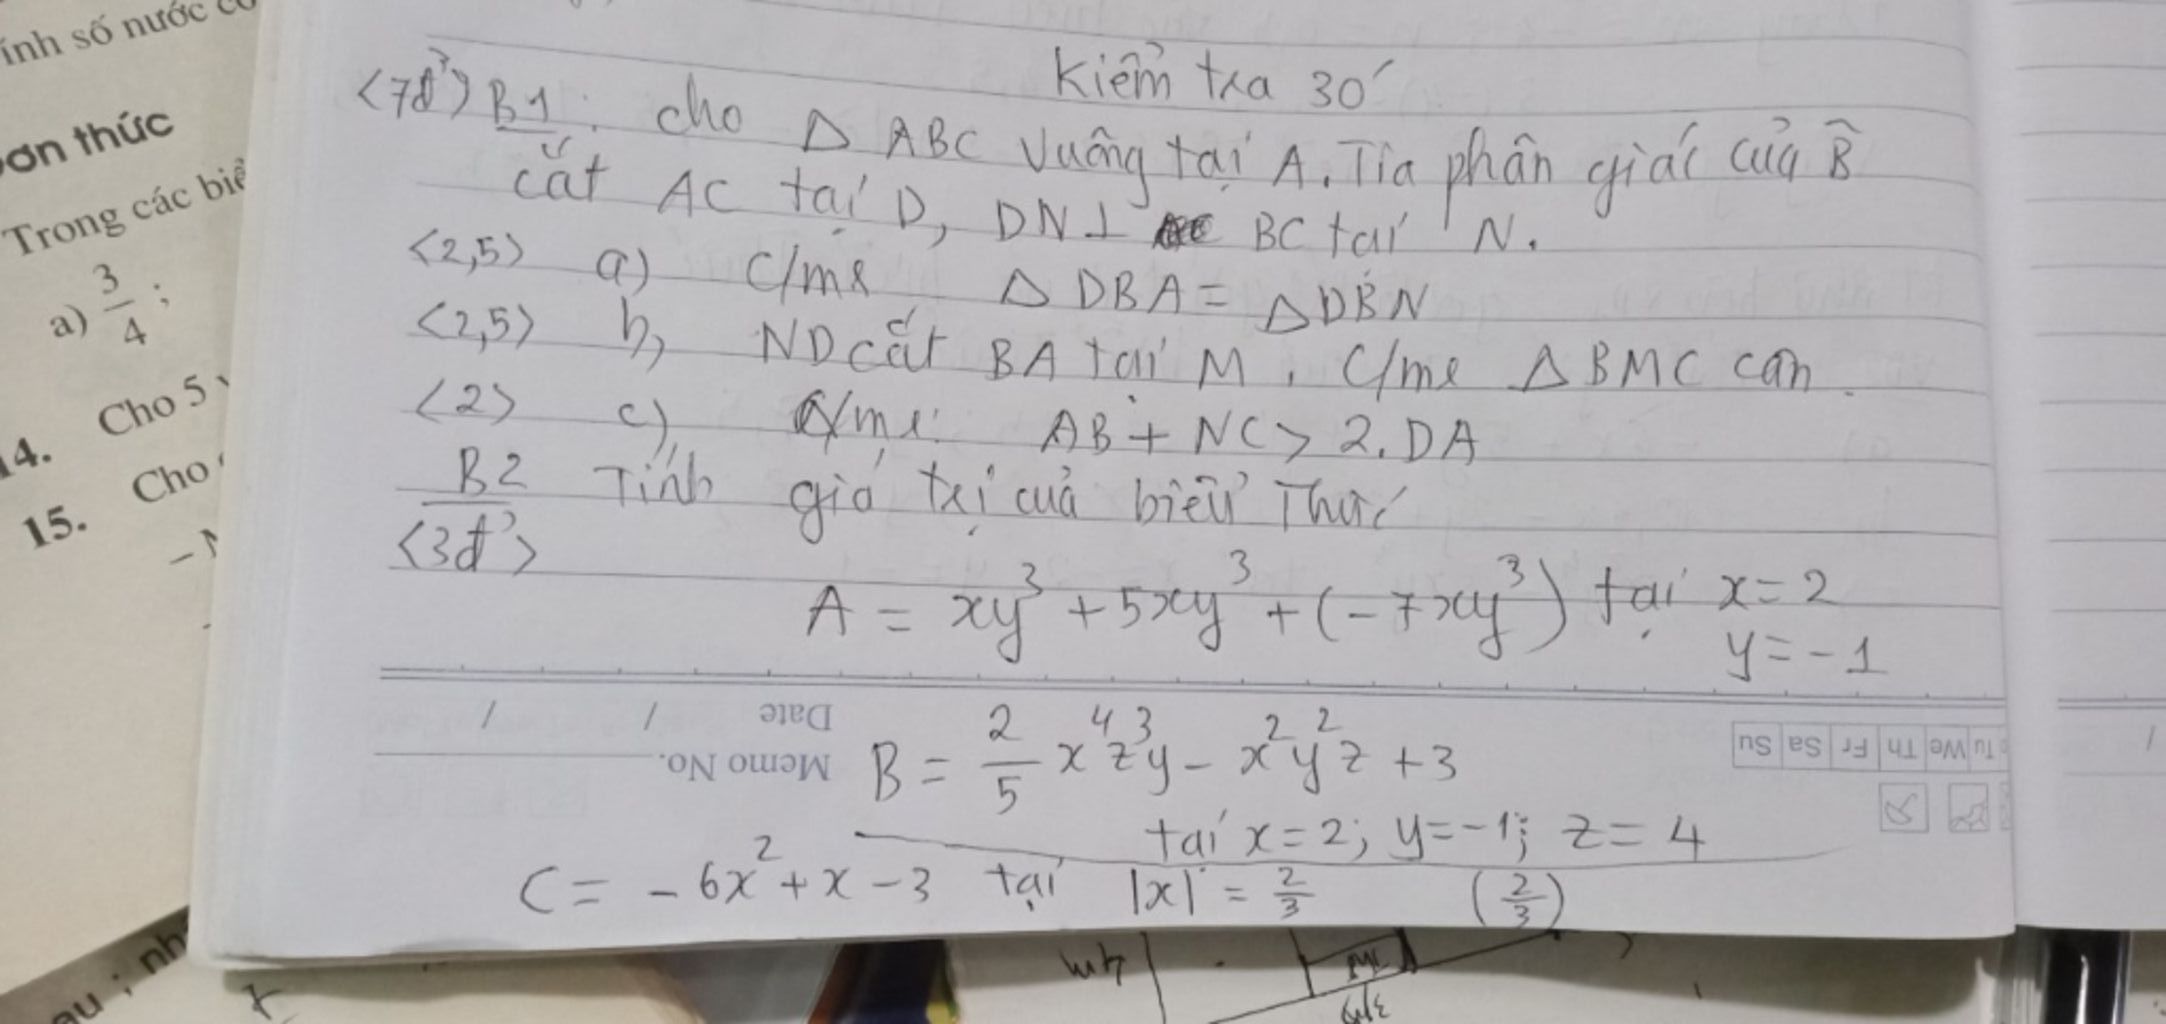 ính số nước
ơn thức
Trong các biể
a) 3/4 ;
14. Cho 5
15. Cho
Kiểm tra 30'
<7đ'> B1 : cho Δ ABC vuông tại A. Tia phân giác của B̂
cắt AC tại D, DN ⊥ BC tại N.
<2,5> a) C/mr Δ DBA = Δ DBN
<2,5> b, ND cắt BA tại M. C/mr Δ BMC cân.
<2> c) C/mr: AB + NC > 2.DA
B2 Tính giá trị của biểu Thức
<3đ'>
A = xy³ + 5xy³ + (-7xy³) tại x = 2
y = -1
Date / /
B = 2/5 x⁴z³y - x²y²z + 3
Memo No.
Tu We Th Fr Sa Su
tại x = 2; y = -1; z = 4
C = - 6x² + x - 3 tại |x| = 2/3 (2/3)
au ; nh